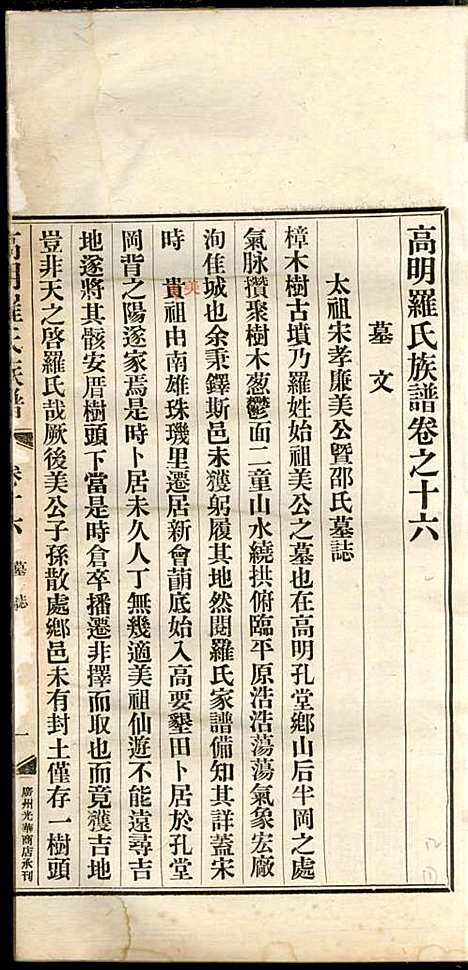 高明羅氏族譜卷之十六
墓文
太祖宋孝廉美公暨邵氏墓誌
樟木樹古墳乃羅姓始祖美公之墓也在高明孔堂鄉山后半岡之處
氣脉攢聚樹木葱鬱面二童山水繞拱俯臨平原浩浩蕩蕩氣象宏廠
洵佳城也余秉鐸斯邑未獲躬履其地然閱羅氏家譜備知其詳蓋宋
時　貴祖由南雄珠璣里遷居新會萌底始入高要墾田卜居於孔堂
美
岡背之陽遂家焉是時卜居未久人丁無幾適美祖仙遊不能遠尋吉
地遂將其骸安厝樹頭下當是時倉卒播遷非擇而取也而竟獲吉地
豈非天之啓羅氏哉厥後美公子孫散處鄉邑未有封土僅存一樹頭
高明羅氏族譜
卷十六
墓誌
一
廣州光華商店承刊
12
①